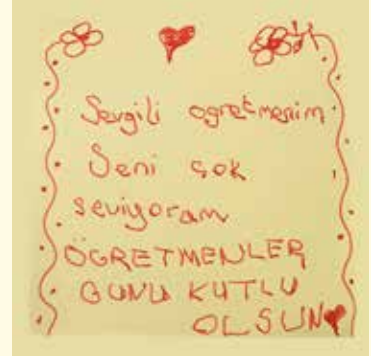 Sevgili ogretmenim
Seni çok
seviyoram
ÖGRETMENLER
GUNU KUTLU
OLSUN